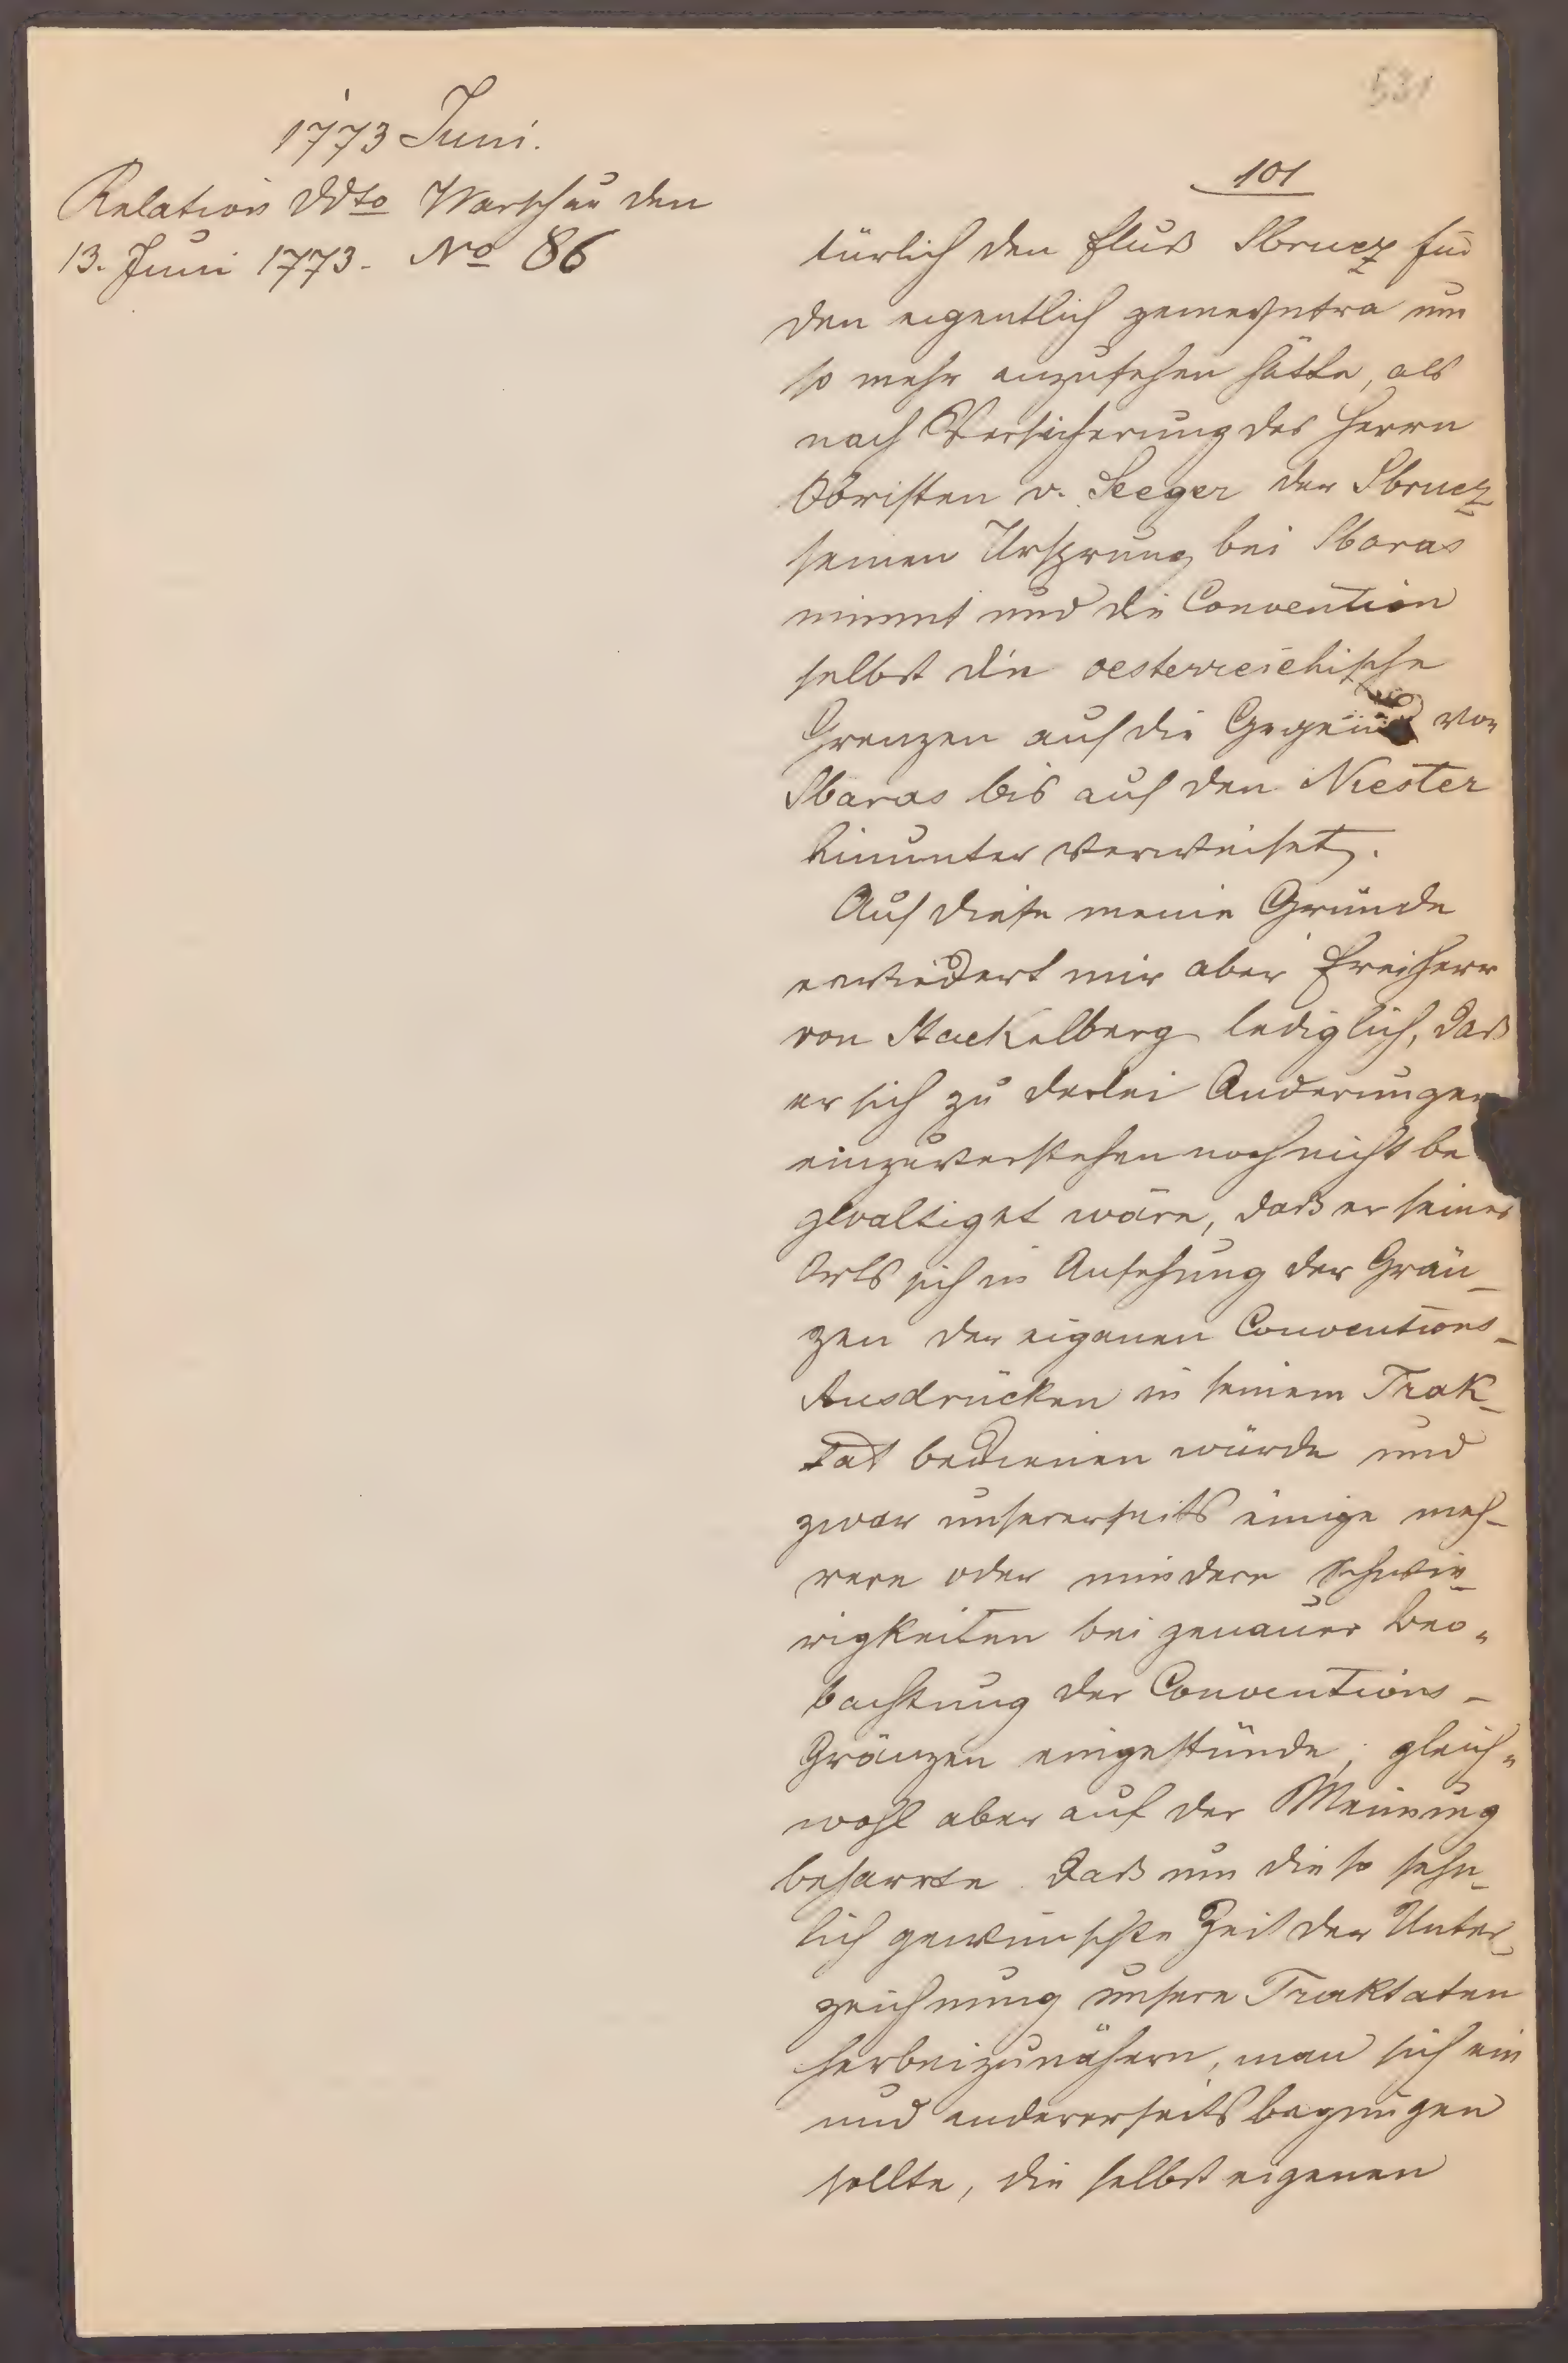 531
1773 Juni.
Relation ddto Warschau den
13. Juni 1773. No 86
101
türlich den Fluß Sbrucz für
den eigentlich gemeynten um
so mehr anzusehen hätte, als
nach Versicherung des Herrn
Obristen v. Seeger der Sbrucz
seinen Ursprung bei Sbaras
nimmt und die Convention
selbst die oesterreichische
Grenzen auf die Gegend von
Sbaras bis auf den Niester
hinunter verweiset.
Auf diese meine Gründe
erwiedert mir aber Freiherr
von Stackelberg lediglich, daß
er sich zu derlei Änderungen
einzuverstehen noch nicht be
gwaltiget wäre, daß er seiner
Orts sich in Ansehung der Grän-
zen der eigenen Conventions-
Ausdrücken in seinem Trak-
tat bedienen würde und
zwar unsererseits einige meh-
rere oder mindere Schwie-
rigkeiten bei genauer Beo-
bachtung der Conventions-
Gränzen eingestünde, gleich-
wohl aber auf der Meinung
beharrte daß um die so sehn-
lich gewünschte Zeit der Unter-
zeichnung unsere Traktaten
herbeizunähern, man sich ein
und andererseits begnügen
sollte, die selbst eigenen